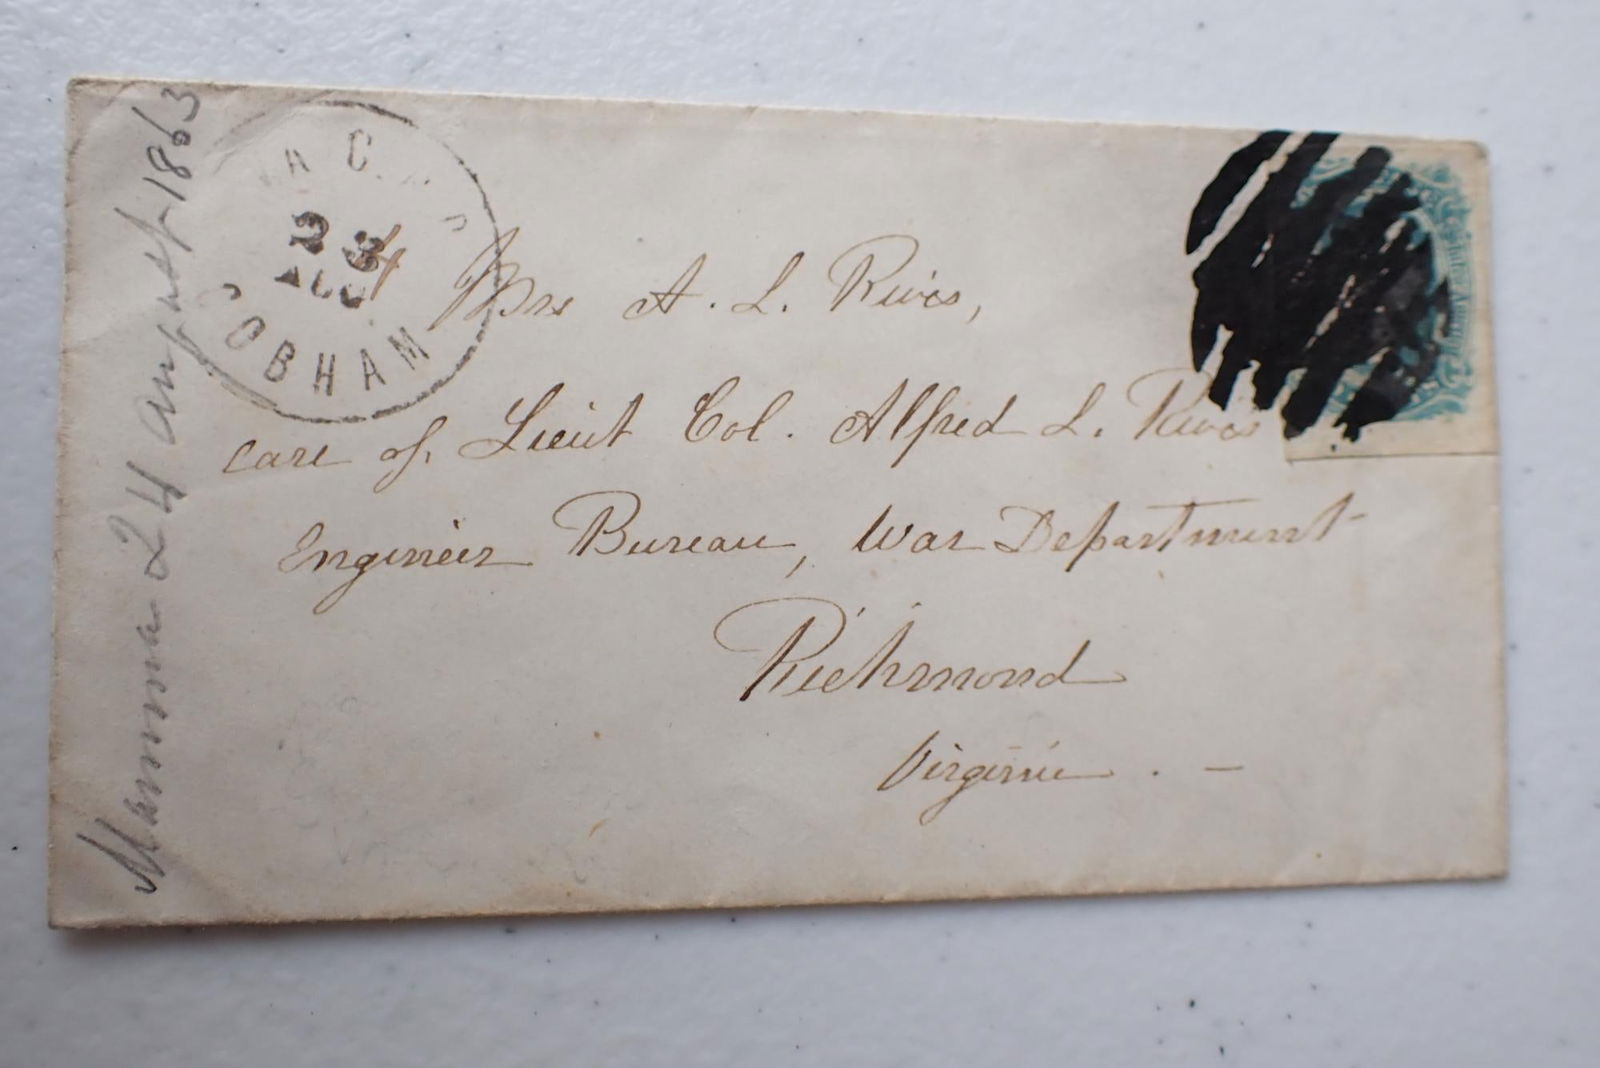 Mamma 24 August 1863
COBHAM
23
AUG
4
Mrs A. L. Rives,
care of Lieut Col. Alfred L. Rives
Engineer Bureau, War Department
Richmond
Virginia . –